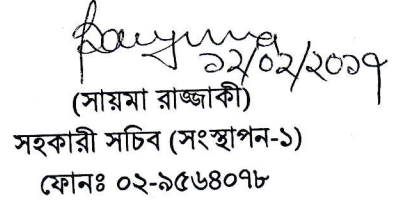 ১২/০২/২০১৭
(সায়মা রাজ্জাকী)
সহকারী সচিব (সংস্থাপন-১)
ফোনঃ ০২-৯৫৬৪০৭৮